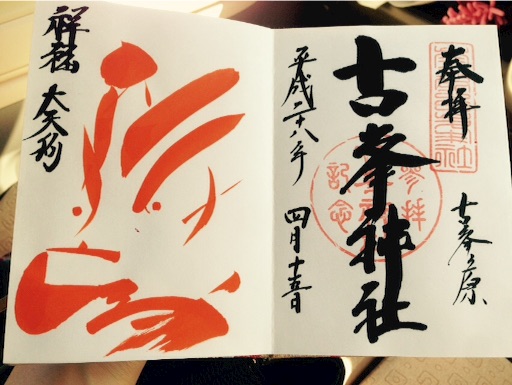 奉拝
古峯ヶ原
古峯神社
参拝
記念
平成二十八年 四月十五日
祥福 大天狗